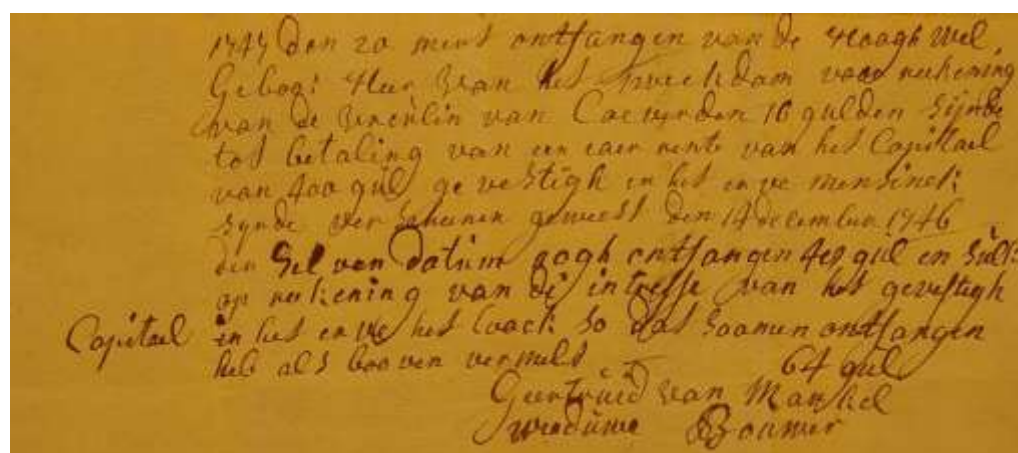 1747 den 20 mert ontfangen van de Hoogh Wel
Geboo: Heer van het voor rekening
van de van Coeverden 16 gulden sijnde
tot betaling van een jaer rente van het Capittael
van 400 gul gevestigh in het erve mensinck:
synde verschenen geweest den 14 december 1746
den selven datum nogh ontfangen 48 gul en sulk
op rekening van die intresse van het gevestigh
Capitael in het erve het loock so dat saamen ontfangen
heb als booven vermelt 64 gul
Geertruid van
weduwe Bouwer